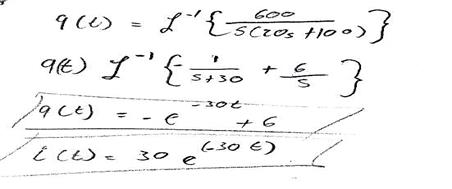 q(t) = L⁻¹ { 600 / s(20s + 100) }
q(t) L⁻¹ { - 1 / s+30 + 6 / s }
q(t) = - e^-30t + 6
i(t) = 30 e^(-30t)